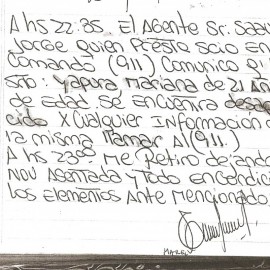 A hs 22:35 El Agente Sr: Saav
Jorge Quien Presta Scio En
Comando (911) Comunico q'
Srta: Yapura Mariana de 21 Años
de Edad Se Encuentra desapa
cida X Cualquier Información
la misma llamar Al (911)
A hs 23:00 Me Retiro dejando
Nov Asentada y Todo en Condici
los Elementos Ante Mencionado